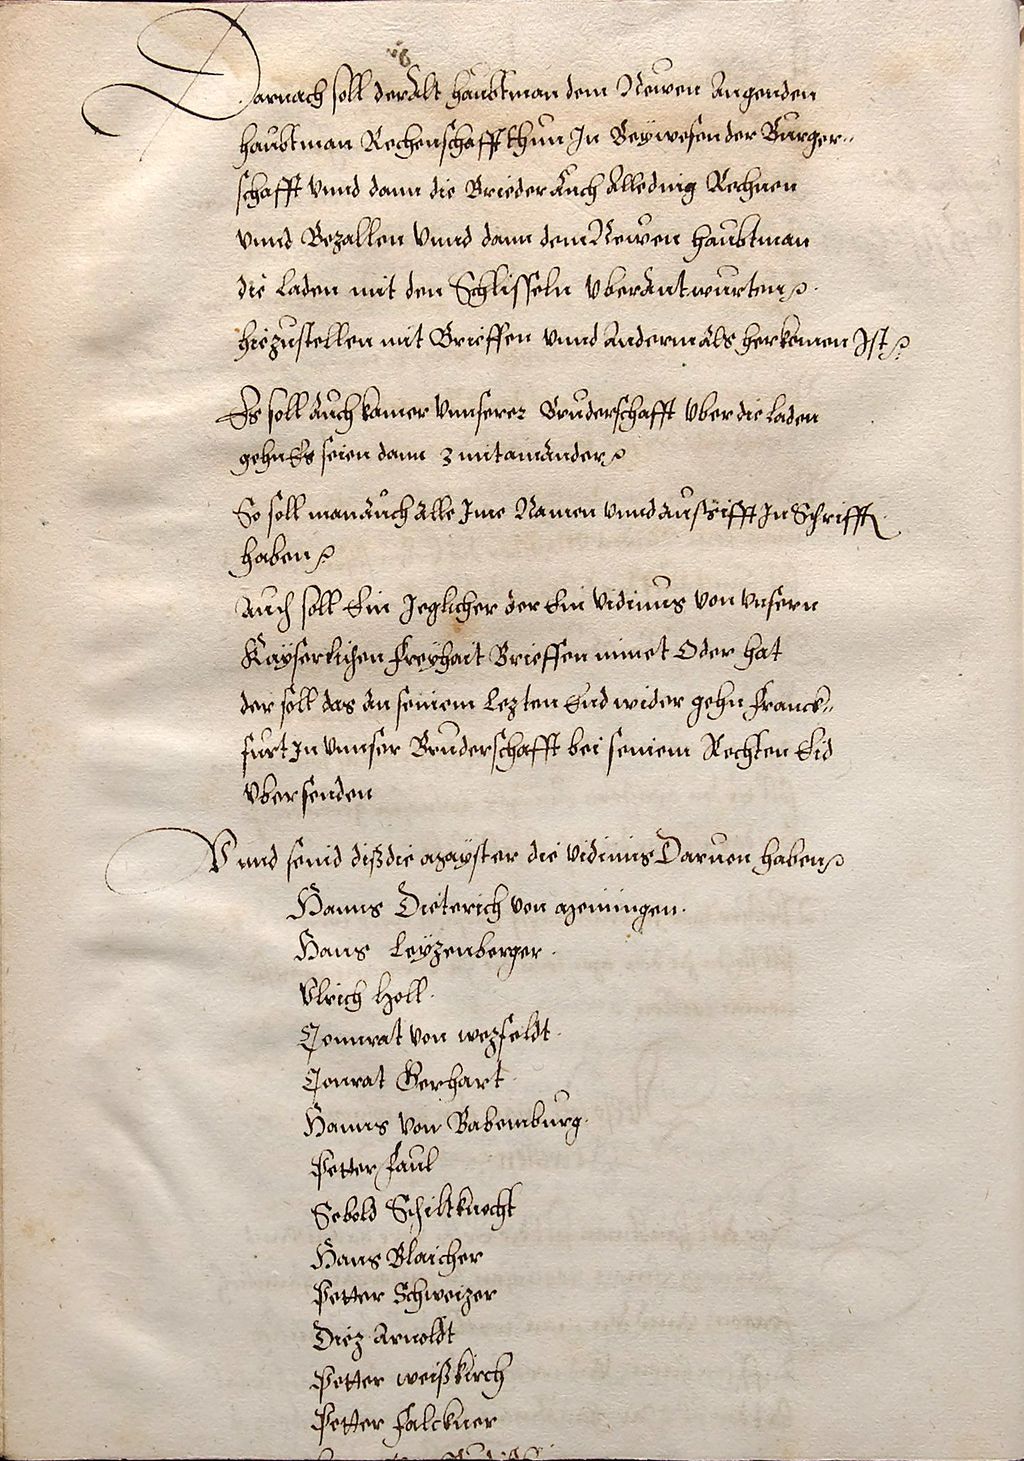 Darnach soll der Alt haubtman dem Newen Angenden
haubtman Rechenschafft thun In Beywesen der Burger-
schafft vnnd dann die Brieder Auch Allednig Rechnen
vnnd Bezallen vnnd dann dem Newen haubtman
die laden mit den Schlisseln vberantwurten
hiezustellen mit Brieffen vnnd Anderm als herkomen Ist
Es soll Auch kainer vnnserer Bruderschafft vber die laden
gehn Es seien dann 3 mitainander
So soll man Auch Alle Ime Namen vnnd In Schrifft
haben
Auch soll Ein Jeglicher der Ein vidimus von vnsern
Kayserlichen Freyhait Brieffen nimet Oder hat
der soll das An seinem Lezten End wider gehn Franck-
furt In vnnser Bruderschafft bei seinem Rechten Eid
vbersenden
Vnnd seind diß die Mayster die vidimus Daruon haben
Hanns Dieterich von Meiningen.
Hans Leyzenberger.
Vlrich Holl.
Connrat von wezfeldt.
Conrat Gerhart
Hanns von Babemburg.
Petter Faul
Sebold Schiltknecht
Hans Blaicher
Petter Schweizer
Diez Arnoldt
Petter weißkirch
Petter Falckner